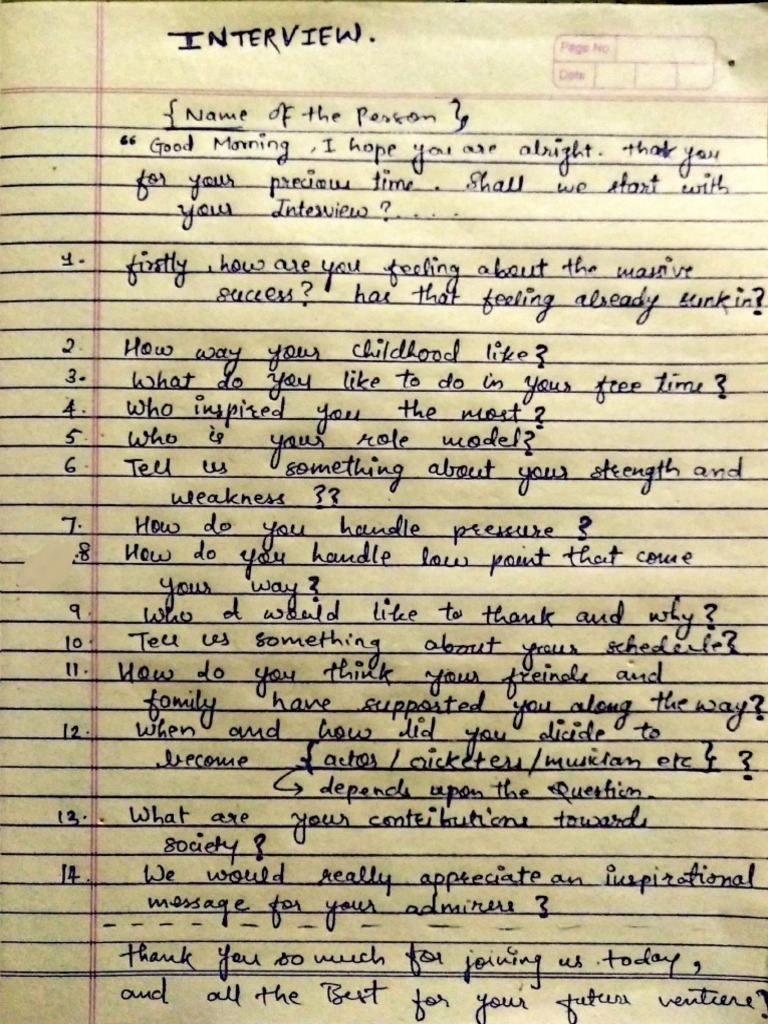 INTERVIEW.
Page No.
Date
{Name of the Person},
" Good Morning, I hope you are alright. thak you
for your precious time. Shall we start with
your Interview?.....
1. firstly, how are you feeling about the massive
success? has that feeling already sunk in?
2. How way your childhood like?
3. What do you like to do in your free time?
4. Who inspired you the most?
5. Who is your role model?
6. Tell us something about your strength and
weakness ??
7. How do you handle pressure ?
8 How do you handle low point that come
your way?
9. Who d would like to thank and why?
10. Tell us something about your schedule?
11. How do you think your freinds and
family have supported you along the way?
12. When and how did you dicide to
become {actor / cricketers / musician etc} ?
↳ depends upon the Question.
13. What are your contributions towards
society ?
14. We would really appreciate an inspirational
message for your admirers ?
thank you so much for joining us today,
and all the Best for your future venture?